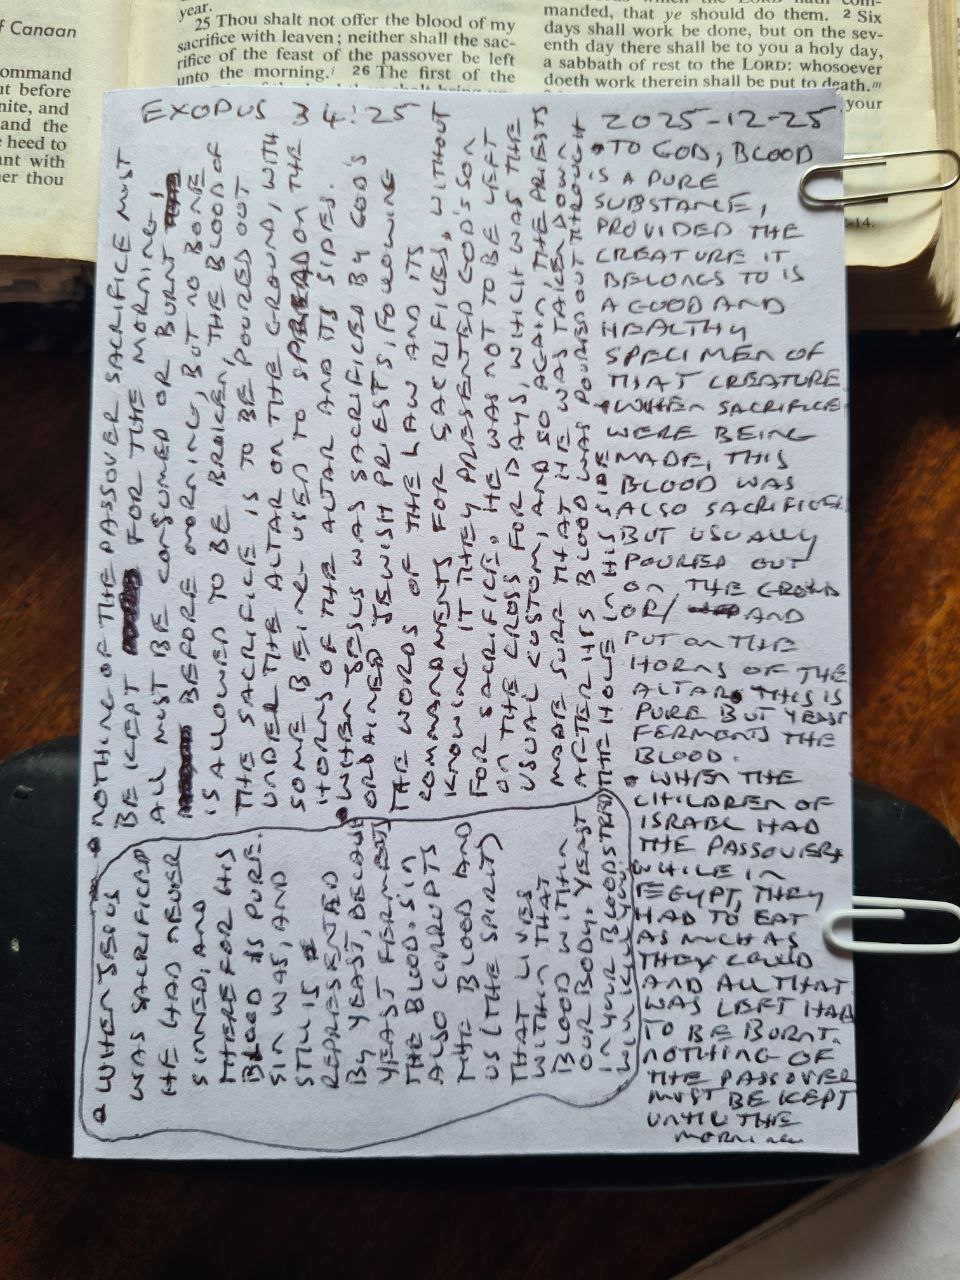 f Canaan
ommand
ut before
nite, and
and the
e heed to
ant with
er thou
year.
25 Thou shalt not offer the blood of my
sacrifice with leaven; neither shall the sac-
rifice of the feast of the passover be left
unto the morning. 26 The first of the
manded, that ye should do them. 2 Six
days shall work be done, but on the sev-
enth day there shall be to you a holy day,
a sabbath of rest to the LORD: whosoever
doeth work therein shall be put to death.
your
-14.
EXODUS 34:25
2025-12-25
• TO GOD, BLOOD
IS A PURE
SUBSTANCE,
PROVIDED THE
CREATURE IT
BELONGS TO IS
A GOOD AND
HEALTHY
SPECIMEN OF
THAT CREATURE
• WHEN SACRIFICE
WERE BEING
MADE, THIS
BLOOD WAS
ALSO SACRIFICE
BUT USUALLY
POURED OUT
ON THE GROND
OR/ AND
PUT ON THE
HORNS OF THE
ALTAR. THIS IS
PURE BUT YEAST
FERMENTS THE
BLOOD.
• WHEN THE
CHILDREN OF
ISRAEL HAD
THE PASSOVER
WHILE IN
EGYPT, THEY
HAD TO EAT
AS MUCH AS
THEY COULD
AND ALL THAT
WAS LEFT HAD
TO BE BURNT.
NOTHING OF
THE PASSOVER
MUST BE KEPT
UNTIL THE
MORNING
• NOTHING OF THE PASSOVER SACRIFICE MUST
BE KEPT FOR THE MORNING!
ALL MUST BE CONSUMED OR BURNT
BEFORE MORNING, BUT NO BONE
IS ALLOWED TO BE BROKEN, THE BLOOD OF
THE SACRIFICE IS TO BE POURED OUT
UNDER THE ALTAR ON THE GROUND, WITH
SOME BEING USED TO SPREAD ON THE
HORNS OF THE ALTAR AND ITS SIDES.
• WHEN JESUS WAS SACRIFICED BY GOD'S
ORDAINED JEWISH PRIESTS, FOLLOWING
THE WORDS OF THE LAW AND ITS
COMMANDMENTS FOR SACRIFICES, WITHOUT
KNOWING IT THEY PRESENTED GOD'S SON
FOR SACRIFICE. HE WAS NOT TO BE LEFT
ON THE CROSS FOR DAYS, WHICH WAS THE
USUAL CUSTOM, AND SO AGAIN, THE PRIESTS
MADE SURE THAT HE WAS TAKEN DOWN
AFTER HIS BLOOD WAS POURED OUT THROUGH
THE HOLE IN HIS SIDE
• WHEN JESUS
WAS SACRIFICED
HE HAD NEVER
SINNED, AND
THEREFOR HIS
BLOOD IS PURE.
SIN WAS, AND
STILL IS
REPRESENTED
BY YEAST, BECAUSE
YEAST FERMENTS
THE BLOOD. SIN
ALSO CORRUPTS
THE BLOOD AND
US (THE SPIRIT)
THAT LIVES
WITHIN THAT
BLOOD WITHIN
OUR BODY. YEAST
IN YOUR BLOODSTREAM
WILL KILL YOU